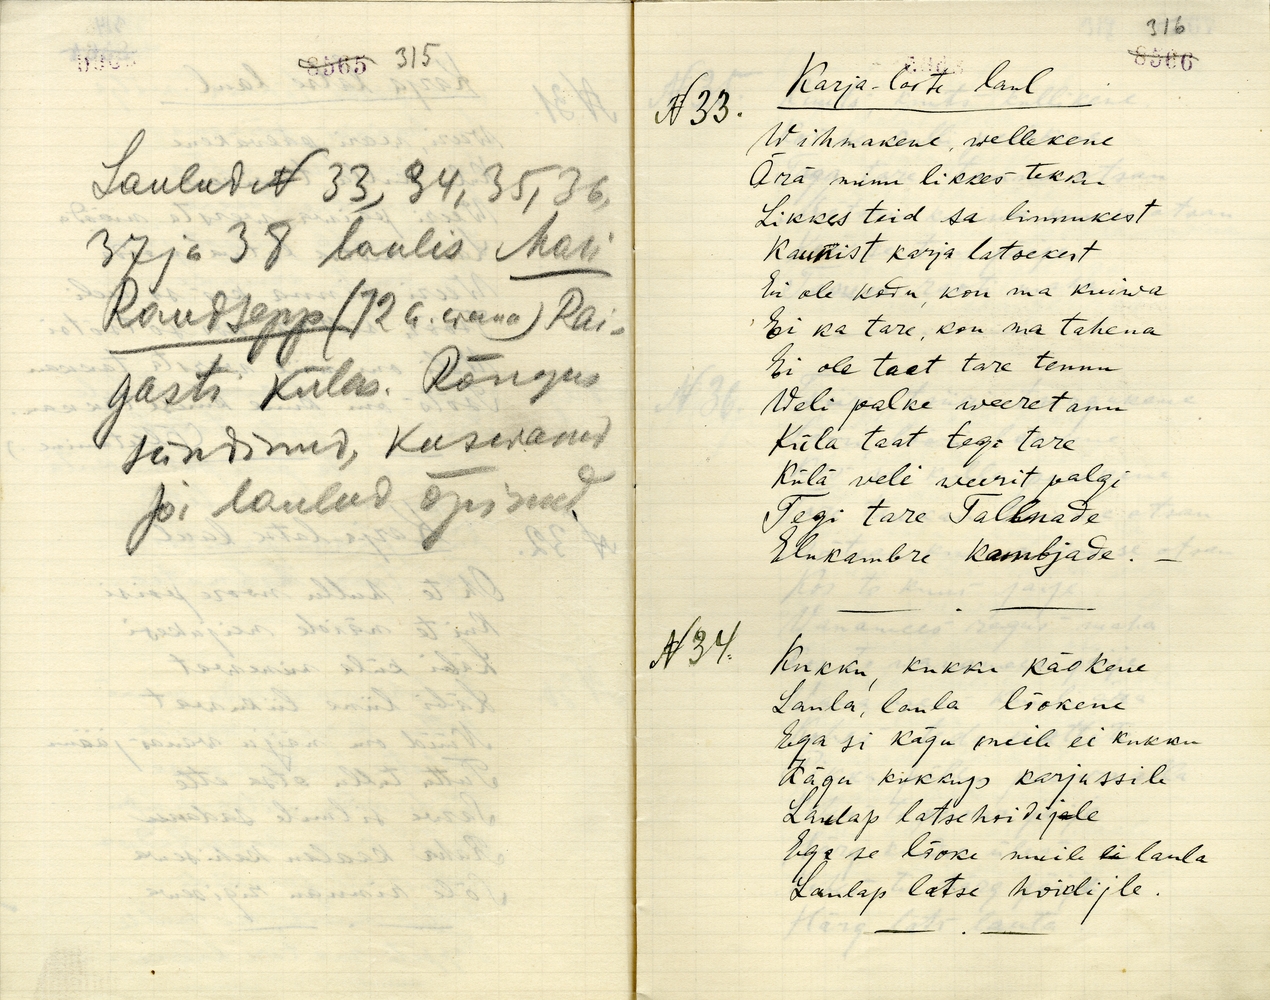 8565 315
Laulud № 33, 34, 35, 36,
37 ja 38 laulis Mari
Raudsepp (72 a. wana) Rai-
gaste külas. Rõngus
sündinud, Kaswanud
ja laulud õpinud.
316
8566
№ 33. Karja-latse laul
Wihmakene, wellekene
Ärä minu likkes tekku
Likkes teid sa linnukest
Kaunist karja latsekest
Ei ole kodu, kon ma kuiwa
Ei ka tare, kon ma tahena
Ei ole taat tare tennu
Weli palke weeretanu
Küla taat tegi tare
Külä veli weerit palgi
Tegi tare Tallnade
Elukambre kambjade. —
№ 34.
Kukku, kukku käokene
Laula, laula lõokene
Ega si kägu meile ei kukku
Kägu kukkup karjussile
Laulap latsehoidijale
Ega se lõoke meile ei laula
Laulap latse hoidijle.